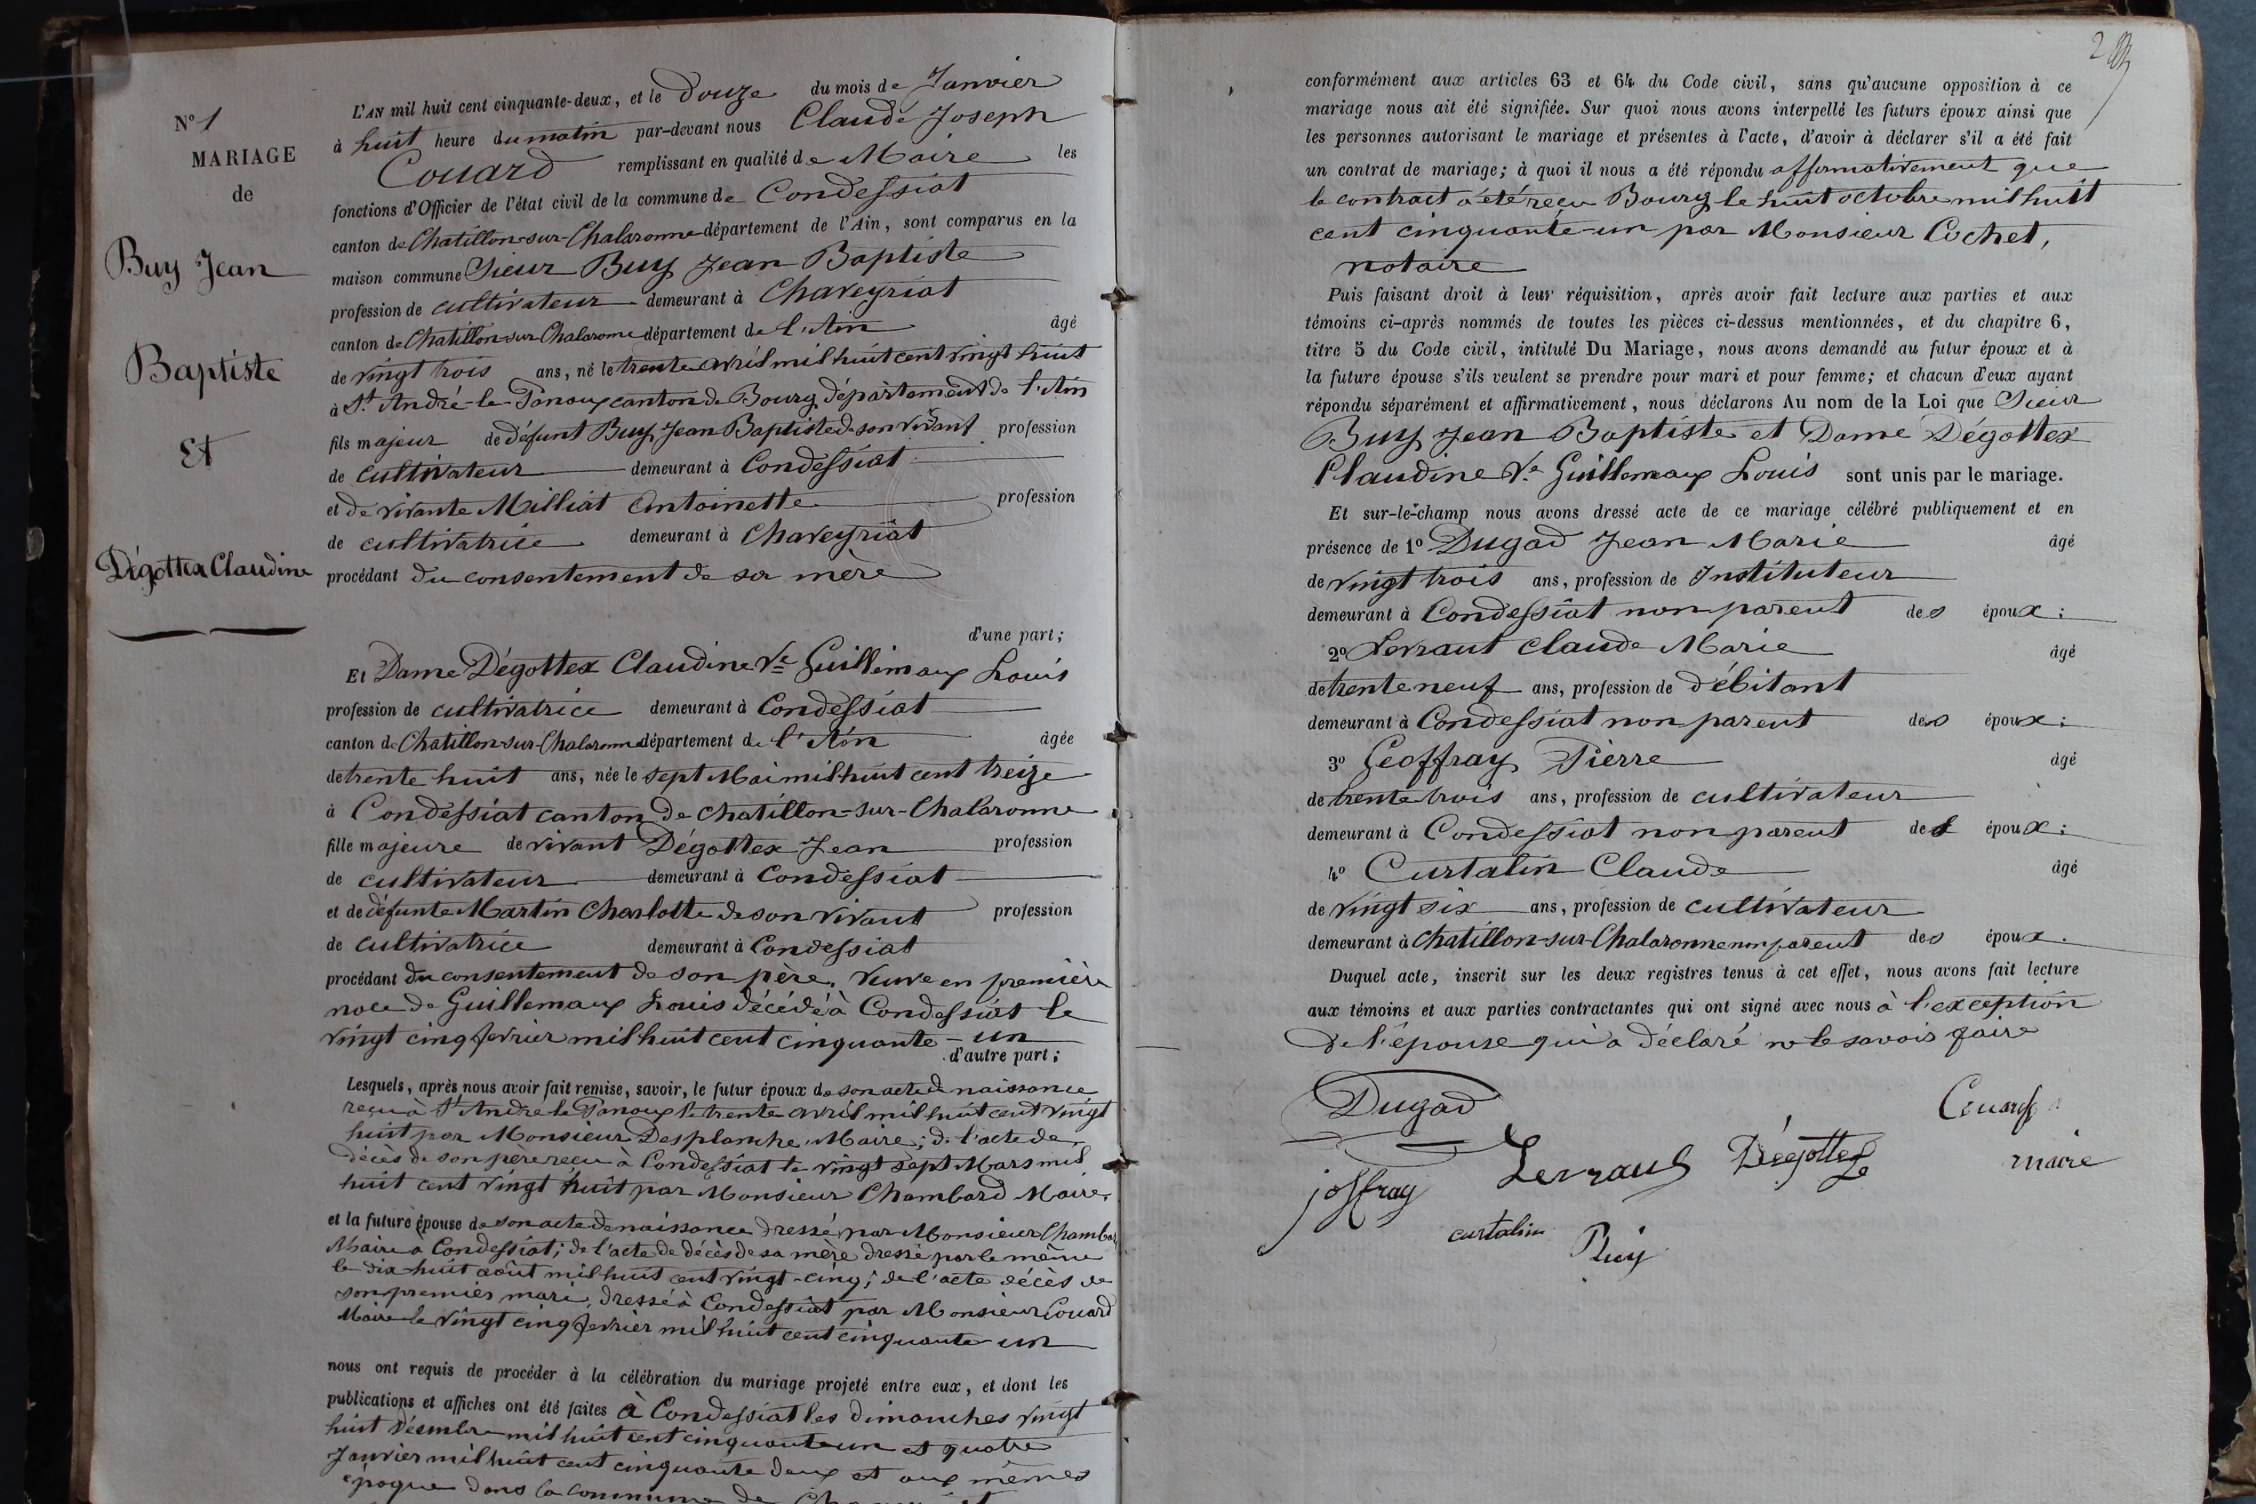 N° 1
MARIAGE
de
Buy Jean
Baptiste
Et
Dégottex Claudine
L'AN mil huit cent cinquante-deux, et le douze du mois de Janvier
à huit heure du matin par-devant nous Claude Joseph
Couard remplissant en qualité de Maire les
fonctions d'Officier de l'état civil de la commune de Condessiat
canton de Chatillon-sur-Chalaronne département de l'Ain, sont comparus en la
maison commune Sieur Buy Jean Baptiste
profession de cultivateur demeurant à Chaveyriat
canton de Chatillon-sur-Chalaronne département de l'Ain âgé
de vingt trois ans, né le trente avril mil huit cent vingt huit
à St André-le-Panoux canton de Bourg département de l'Ain
fils majeur de défunt Buy Jean Baptiste de son vivant profession
de cultivateur demeurant à Condessiat
et de vivante Milliat Antoinette profession
de cultivatrice demeurant à Chaveyriat
procédant du consentement de sa mère
d'une part;
Et Dame Dégottex Claudine Ve Guillemaux Louis
profession de cultivatrice demeurant à Condessiat
canton de Chatillon-sur-Chalaronne département de l'Ain âgée
de trente huit ans, née le sept Mai mil huit cent treize
à Condessiat canton de Chatillon-sur-Chalaronne
fille majeure de vivant Dégottex Jean profession
de cultivateur demeurant à Condessiat
et de défunte Martin Charlotte de son vivant profession
de cultivatrice demeurant à Condessiat
procédant du consentement de son père. Veuve en première
noce de Guillemaux Louis décédé à Condessiat le
vingt cinq fevrier mil huit cent cinquante-un
d'autre part;
Lesquels, après nous avoir fait remise, savoir, le futur époux de son acte de naissance
reçu à St André le Panoux le trente avril mil huit cent vingt
huit par Monsieur Desplanche Maire; de l'acte de
décès de son père reçu à Condessiat le vingt sept Mars mil
huit cent vingt huit par Monsieur Chambard Maire.
et la future épouse de son acte de naissance dressé par Monsieur Chambar
Maire à Condessiat; de l'acte de décès de sa mère dressé par le même
le dix huit août mil huit cent vingt-cinq; de l'acte décès de
son premier mari, dressé à Condessiat par Monsieur Couard
Maire le vingt cinq fevrier mil huit cent cinquante un
nous ont requis de procéder à la célébration du mariage projeté entre eux, et dont les
publications et affiches ont été faites à Condessiat les dimanches vingt
huit Décembre mil huit cent cinquante un et quatre
Janvier mil huit cent cinquante deux et aux mêmes
époque dans la commune de
conformément aux articles 63 et 64 du Code civil, sans qu'aucune opposition à ce
mariage nous ait été signifiée. Sur quoi nous avons interpellé les futurs époux ainsi que
les personnes autorisant le mariage et présentes à l'acte, d'avoir à déclarer s'il a été fait
un contrat de mariage; à quoi il nous a été répondu affirmativement que
le contract a été reçu Bourg le huit octobre mil huit
cent cinquante-un par Monsieur Cochet,
notaire
Puis faisant droit à leur réquisition, après avoir fait lecture aux parties et aux
témoins ci-après nommés de toutes les pièces ci-dessus mentionnées, et du chapitre 6,
titre 5 du Code civil, intitulé Du Mariage, nous avons demandé au futur époux et à
la future épouse s'ils veulent se prendre pour mari et pour femme; et chacun d'eux ayant
répondu séparément et affirmativement, nous déclarons Au nom de la Loi que Sieur
Buy Jean Baptiste et Dame Dégottex
Claudine Ve Guillemaux Louis sont unis par le mariage.
Et sur-le-champ nous avons dressé acte de ce mariage célébré publiquement et en
présence de 1° Dugad Jean Marie âgé
de vingt trois ans, profession de Instituteur
demeurant à Condessiat non parent des époux;
2° Levraut Claude Marie âgé
de trente neuf ans, profession de débitant
demeurant à Condessiat non parent des époux;
3° Geoffray Pierre âgé
de trente trois ans, profession de cultivateur
demeurant à Condessiat non parent des époux;
4° Curtalin Claude âgé
de vingt six ans, profession de cultivateur
demeurant à Chatillon-sur-Chalaronne non parent des époux.
Duquel acte, inscrit sur les deux registres tenus à cet effet, nous avons fait lecture
aux témoins et aux parties contractantes qui ont signé avec nous à l'exception
de l'épouse qui a déclaré ne le savoir faire
Dugad
Couard
Levraut Dégottex
maire
joffray
curtalin
Buy